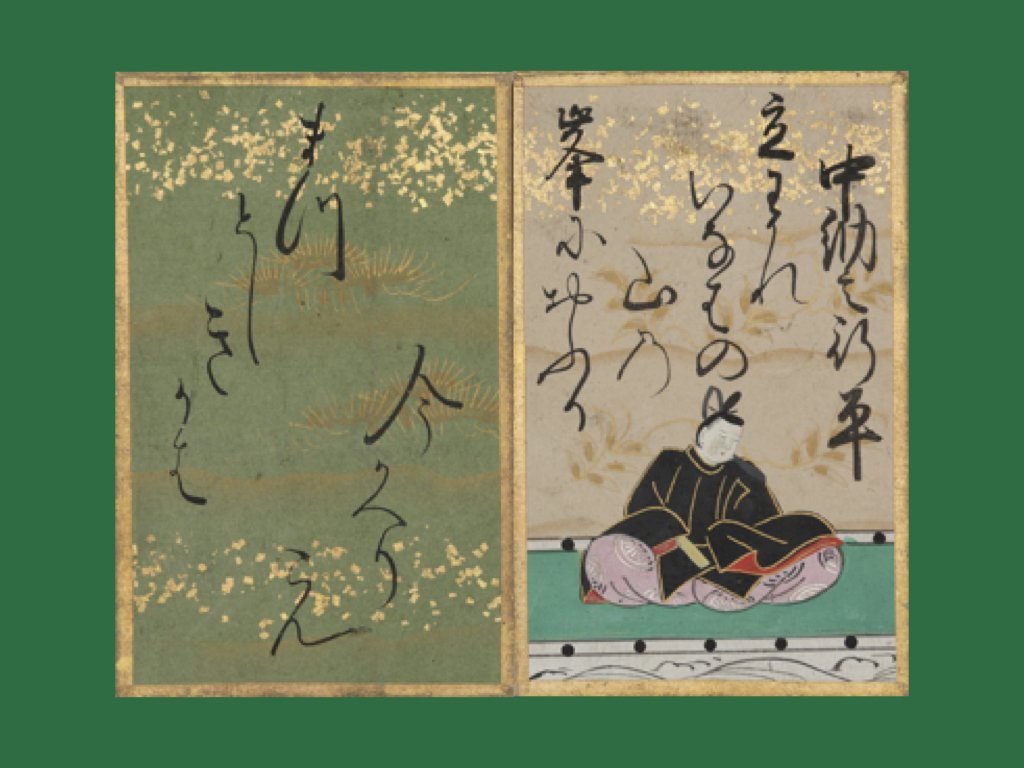 中納言行平
立わかれ
いなはの
山の
峯におふる
まつ
とし
き
かは
今
かへり
こん